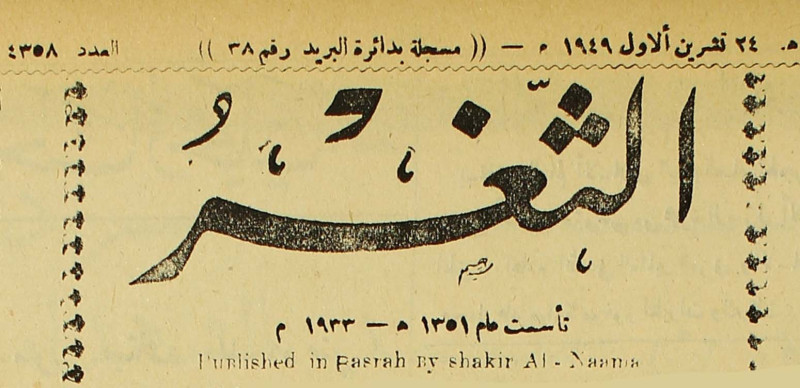 هـ. ٢٤ تشرين ألاول ١٩٤٩ م — (( مسجلة بدائرة البريد رقم ٣٨ )) العدد ٤٣٥٨
الثغر
تأسست عام ١٣٥١ هـ — ١٩٣٣ م
Published in Basrah By shakir Al - Naama